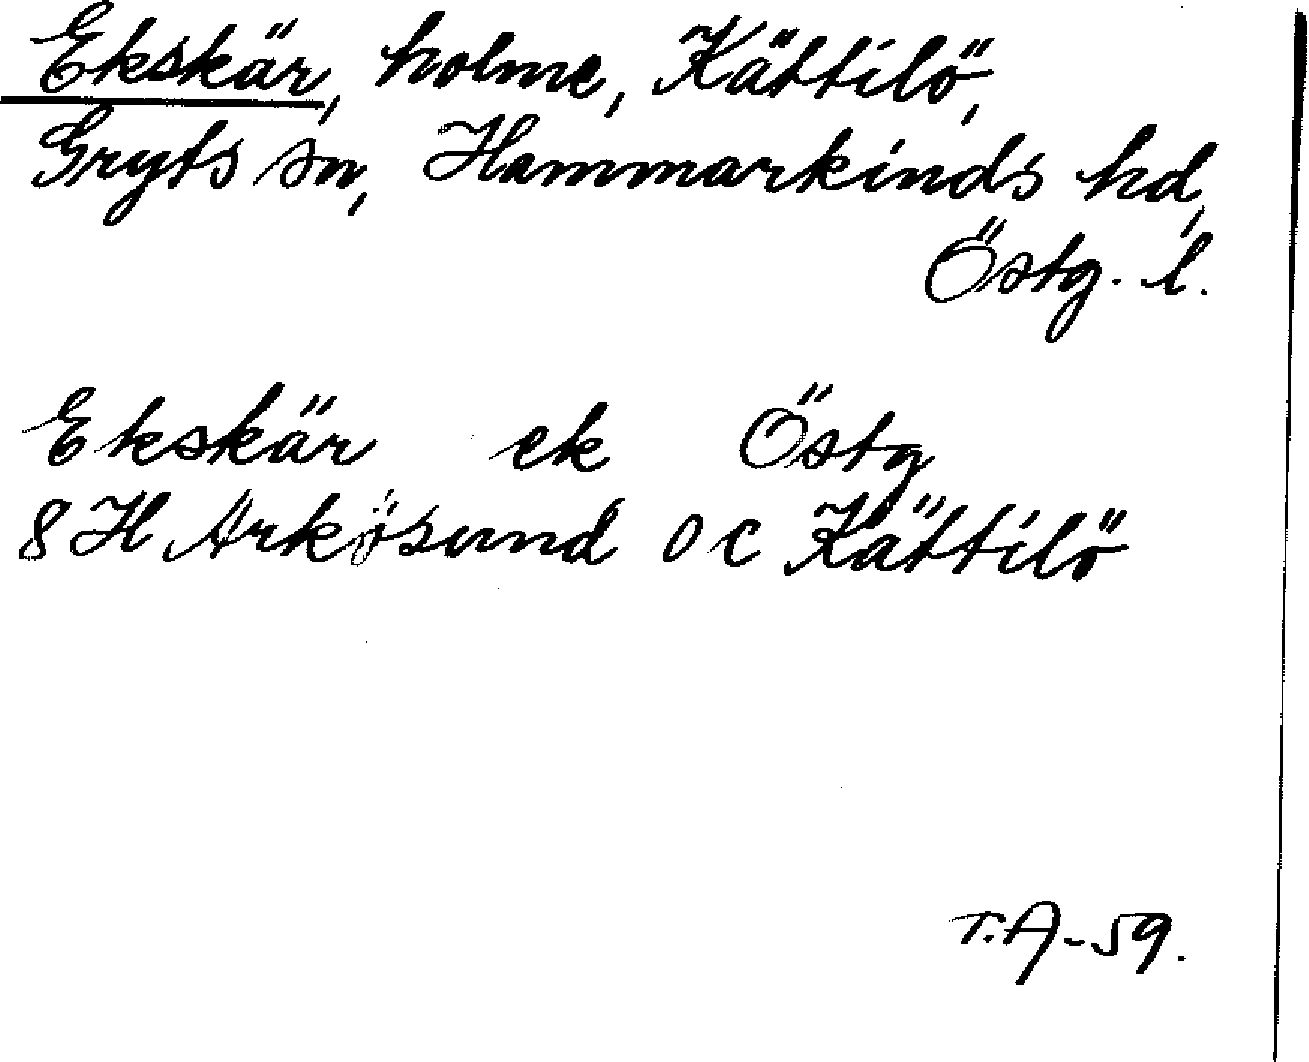 Ekskär, holme, Kättilö,
Gryts sn, Hammarkinds hd,
Östg. l.
Ekskär ek Östg
8 H Arkösund 0 c Kättilö
T.A-59.